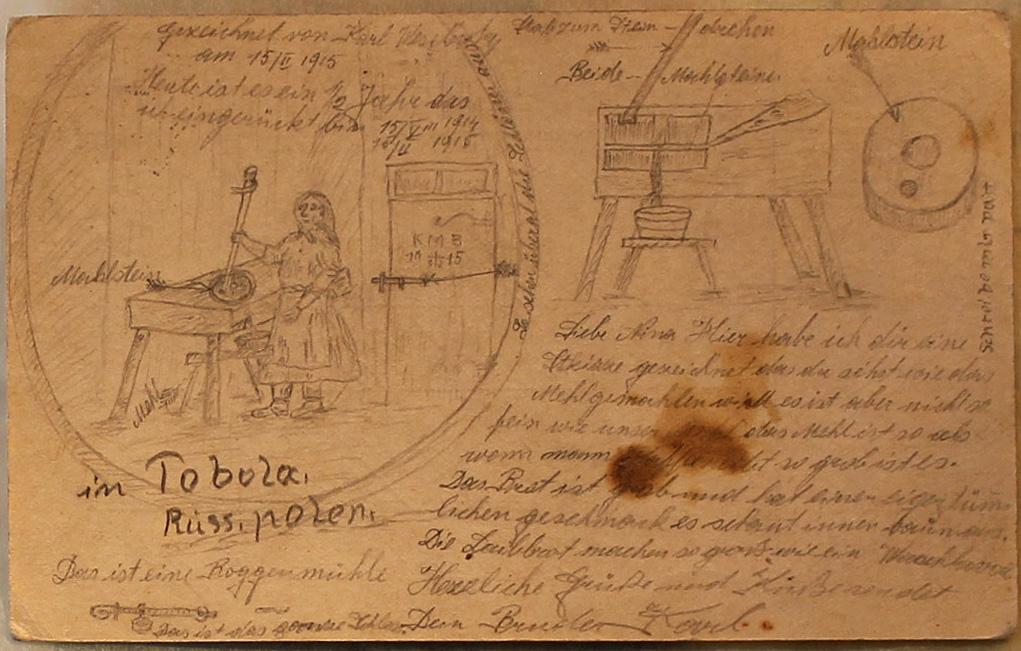 Gezeichnet von Karl
am 15/II 1915
Heute ist es ein 1/2 Jahr das
ich eingerückt bin
15/VIII 1914
15/II 1915
Mahlstein
KMB
15
Mehl
in Tobola.
Russ. polen.
Das ist eine Roggenmühle
Das ist das ganze Schloss.
So sehen überal die
Stab zum drehen
Beide Mahlsteine.
Mahlstein
Schreibe mir
Liebe Nina Hier habe ich dir eine
Skizze gezeichnet das du sehst wie das
Mehl gemahlen wird es ist aber nicht so
fein wie unser das Mehl ist so als
wenn mann so grob ist es.
Das Brot ist grob und hat einen eigentüm
lichen geschmack es schaut innen braun aus.
Die Laibbrot machen so gross wie ein
Herzliche Grüße und Küße sendet
Dein Bruder Karl.